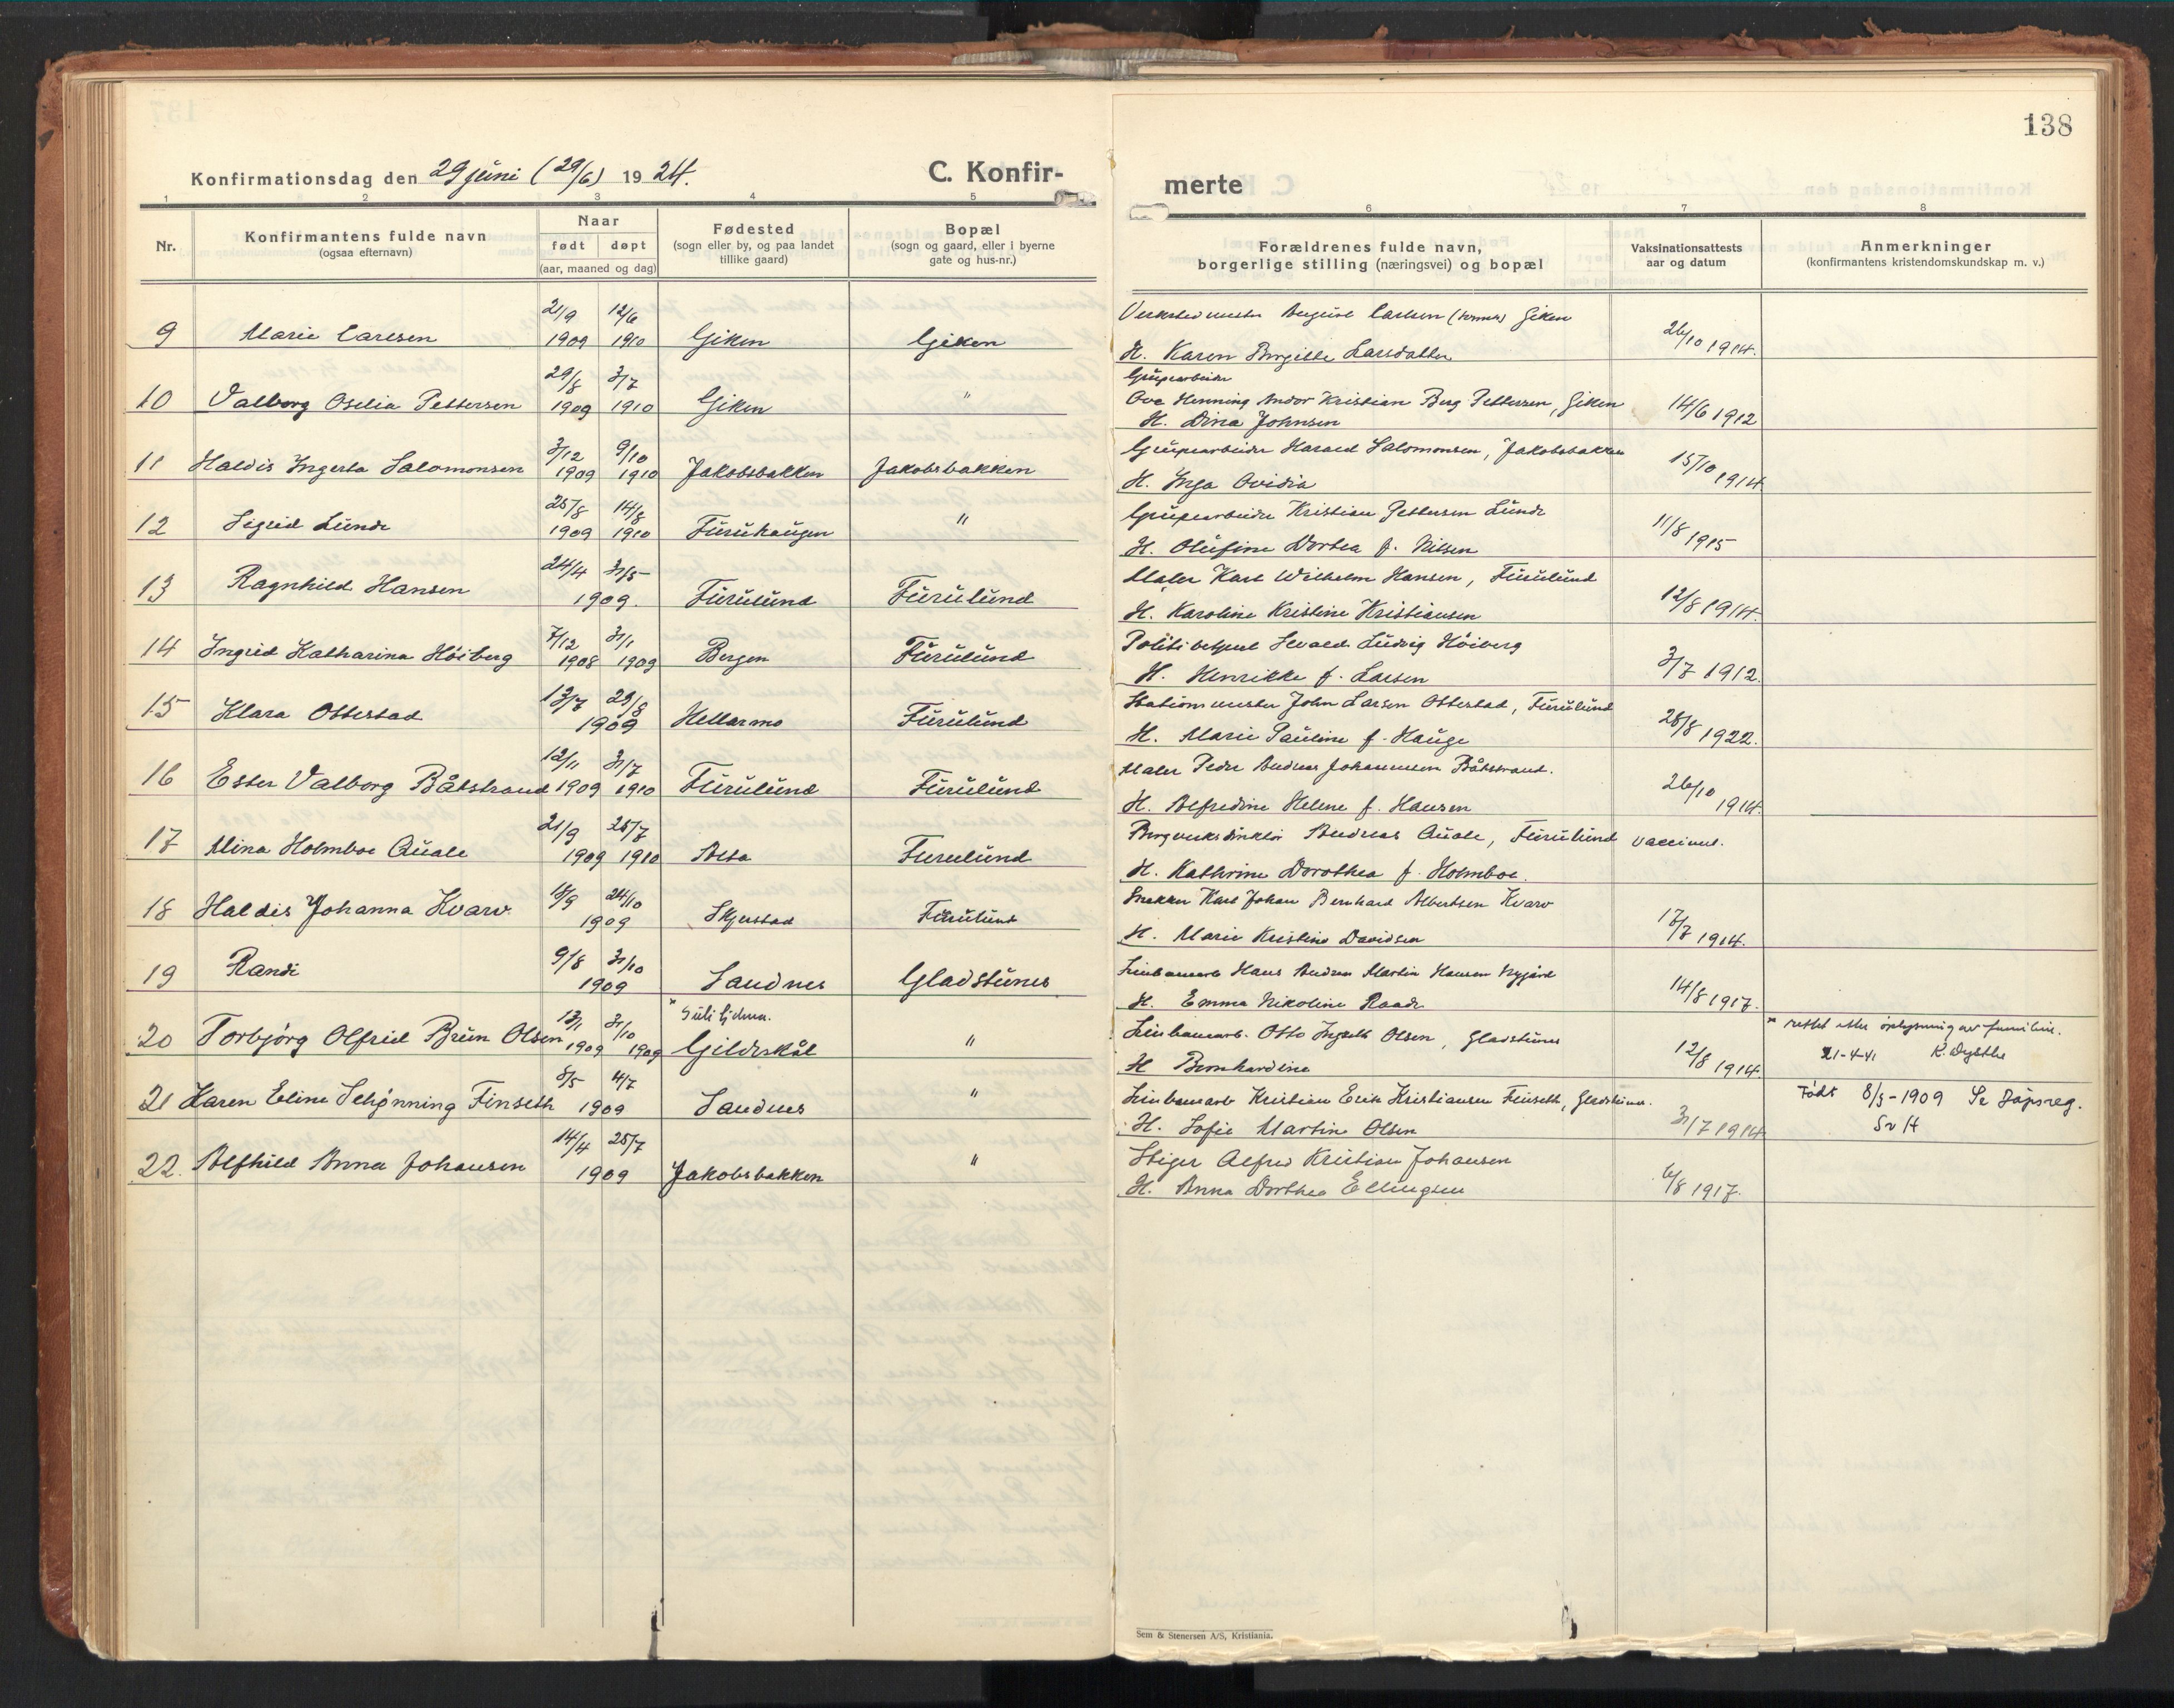 138
Konfirmationsdag den 29 juni (29/6) 1924.
C. Konfir-
merte
1 2 3 4 5 6 7 8
Nr.
Konfirmantens fulde navn
(ogsaa efternavn)
Naar
født døpt
(aar, maaned og dag)
Fødested
(sogn eller by, og paa landet
tillike gaard)
Bopæl
(sogn og gaard, eller i byerne
gate og hus-nr.)
Forældrenes fulde navn,
borgerlige stilling (næringsvei) og bopæl
Vaksinationsattests
aar og datum
Anmerkninger
(konfirmantens kristendomskundskap m. v.)
21/9 12/6 August Carlsen Giken
9 Marie Carlsen 1909 1910 Giken Giken 26/10 1914.
H. Karen Birgitte Larsdatter
29/8 3/7 Grubearbeider
10 Valborg Oselia Pettersen 1909 1910 Giken " Ove Henning Andor Kristian Berg Pettersen, Giken 14/6 1912
H. Dina Johnsen
3/12 9/10 Grubearbeider Harald Salomonsen, Jakobsbakken
11 Haldis Ingerta Salomonsen 1909 1910 Jakobsbakken Jakobsbakken 15/10 1914
H. Inga Ovidia
25/8 14/8 Grubearbeider Kristian Pettersen Lund
12 Sigrid Lund 1909 1910 Furuhaugen " 11/8 1915
H. Olufine Dortea f. Nilsen
24/4 31/5 Maler Karl Wilhelm Hansen, Furulund
13 Ragnhild Hansen 1909. Furulund Furulund 12/8 1914.
H. Karoline Kristine Kristiansen
7/12 31/1 Politibetjent Sevald Ludvig Höiberg
14 Ingrid Katharina Höiberg 1908 1909 Bergen Furulund 3/7 1912.
H. Henrikke f. Larsen
13/7 29/8 Stationsmester John Larsen Otterstad, Furulund
15 Klara Otterstad 1909 Hellarmo Furulund 28/8 1922.
H. Marie Pauline f. Hauge
12/11 31/7 Maler Peder Andreas Johannesen Båtstrand.
16 Ester Valborg Båtstrand 1909 1910 Furulund Furulund 26/10 1914.
H. Alfredine Helene f. Hansen
21/9 25/7 Bergverksdirektör Andreas Quale, Furulund
17 Mina Holmboe Quale 1909 1910 Alta Furulund
H. Kathrine Dorothea f. Holmboe.
18/9 24/10 Snekker Karl Johan Bernhard Albertsen Kvarv
18 Haldis Johanna Kvarv 1909 Skjerstad Furulund 17/7 1914.
H. Marie Kristine Davidsen
9/8 31/10 Linbanearb Hans Andreas Martin Hansen Nygård
19 Randi 1909 Sandnes Gladstunes 14/8 1917.
H. Emma Nikoline Raade
13/1 31/10 * Linbanearb. Otto Ingvald Olsen, Gladstunes
20 Torbjørg Olfrid Brun Olsen 1909 1909 Gildeskål " 12/8 1914.
H Bernhardine
* rettet etter oplysning av familien.
21-4-41 K. Dysthe
8/5 4/7 Linbanearb Kristian Erik Kristiansen Finseth, Gladstunes.
21 Karen Eline Schønning Finseth 1909 Sandnes " 31/7 1914
H. Sofie Martine Olsen
Født 8/5-1909 Se Dåpsreg.
14/4 25/7 Stiger Alfred Kristian Johansen
22. Alfhild Anna Johansen 1909 Jakobsbakken " 6/8 1917.
H. Anna Dorthea Ellingsen
Sem & Stenersen A/S, Kristiania.